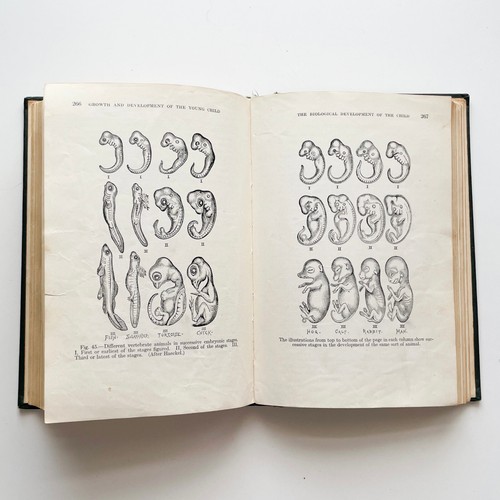 266 GROWTH AND DEVELOPMENT OF THE YOUNG CHILD
I I I I
II II II II
III III III III
FISH. SALAMANDER. TORTOISE. CHICK.
Fig. 45.—Different vertebrate animals in successive embryonic stages.
I, First or earliest of the stages figured. II, Second of the stages. III,
Third or latest of the stages. (After Haeckel.)
THE BIOLOGICAL DEVELOPMENT OF THE CHILD 267
I I I I
II II II II
III III III III
HOG. CALF. RABBIT. MAN.
The illustrations from top to bottom of the page in each column show suc-
cessive stages in the development of the same sort of animal.